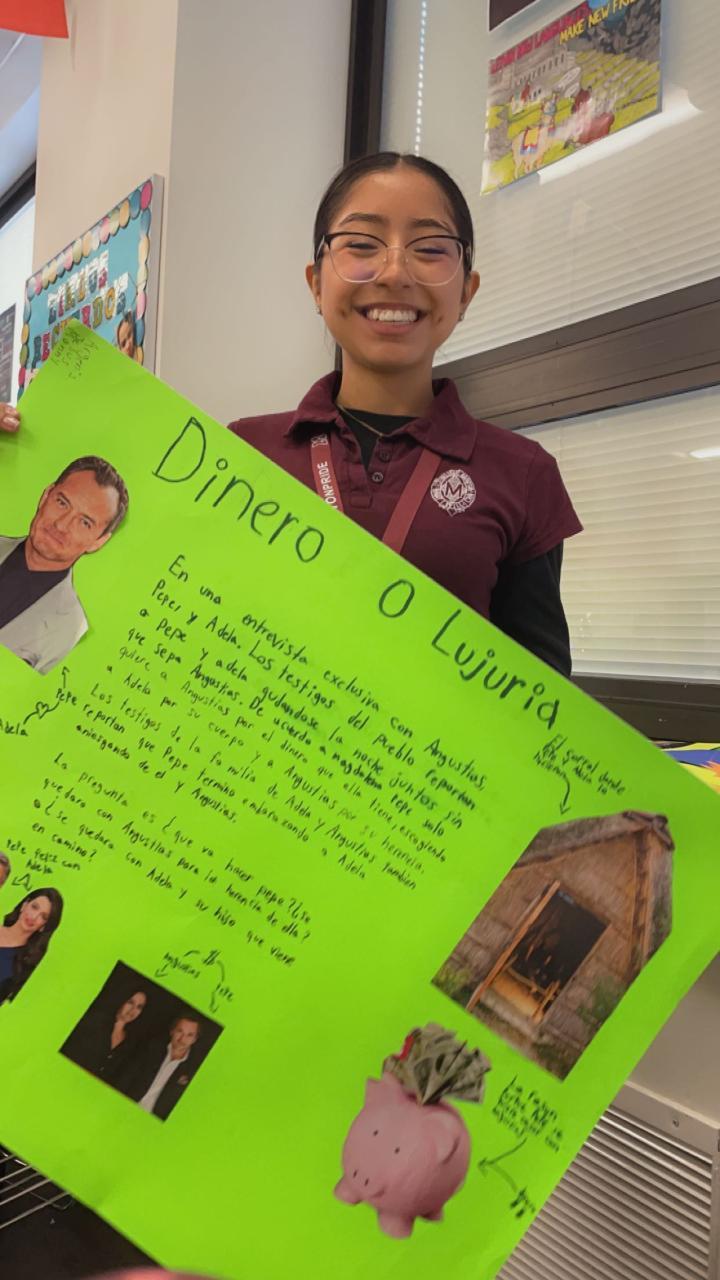 MAKE NEW
Dinero O Lujuria
En una entrevista exclusiva con Angustias,
Pepe, y Adela. Los testigos del pueblo reportan
a Pepe y adela qudandose la noche juntos sin
que sepa Angustias. De acuerdo a magdalena Pepe solo
quiere a Angustias por el dinero que ella tiene, escogiendo
a Adela por su cuerpo y a Angustias por su herencia.
Los testigos de la familia de Adela y Angustias tambien
reportan que Pepe termino embarazando a Adela
de el y Angustias.
La pregunta es ¿que va hacer pepe? ¿se
quedara con Angustias para la herencia de ella?
o ¿se quedara con Adela y su hijo que viene
en camino?
Pepe
Adela
El corral donde
Pepe feliz con
Adela
Angustias
Pepe
La razon
M
ONPRIDE